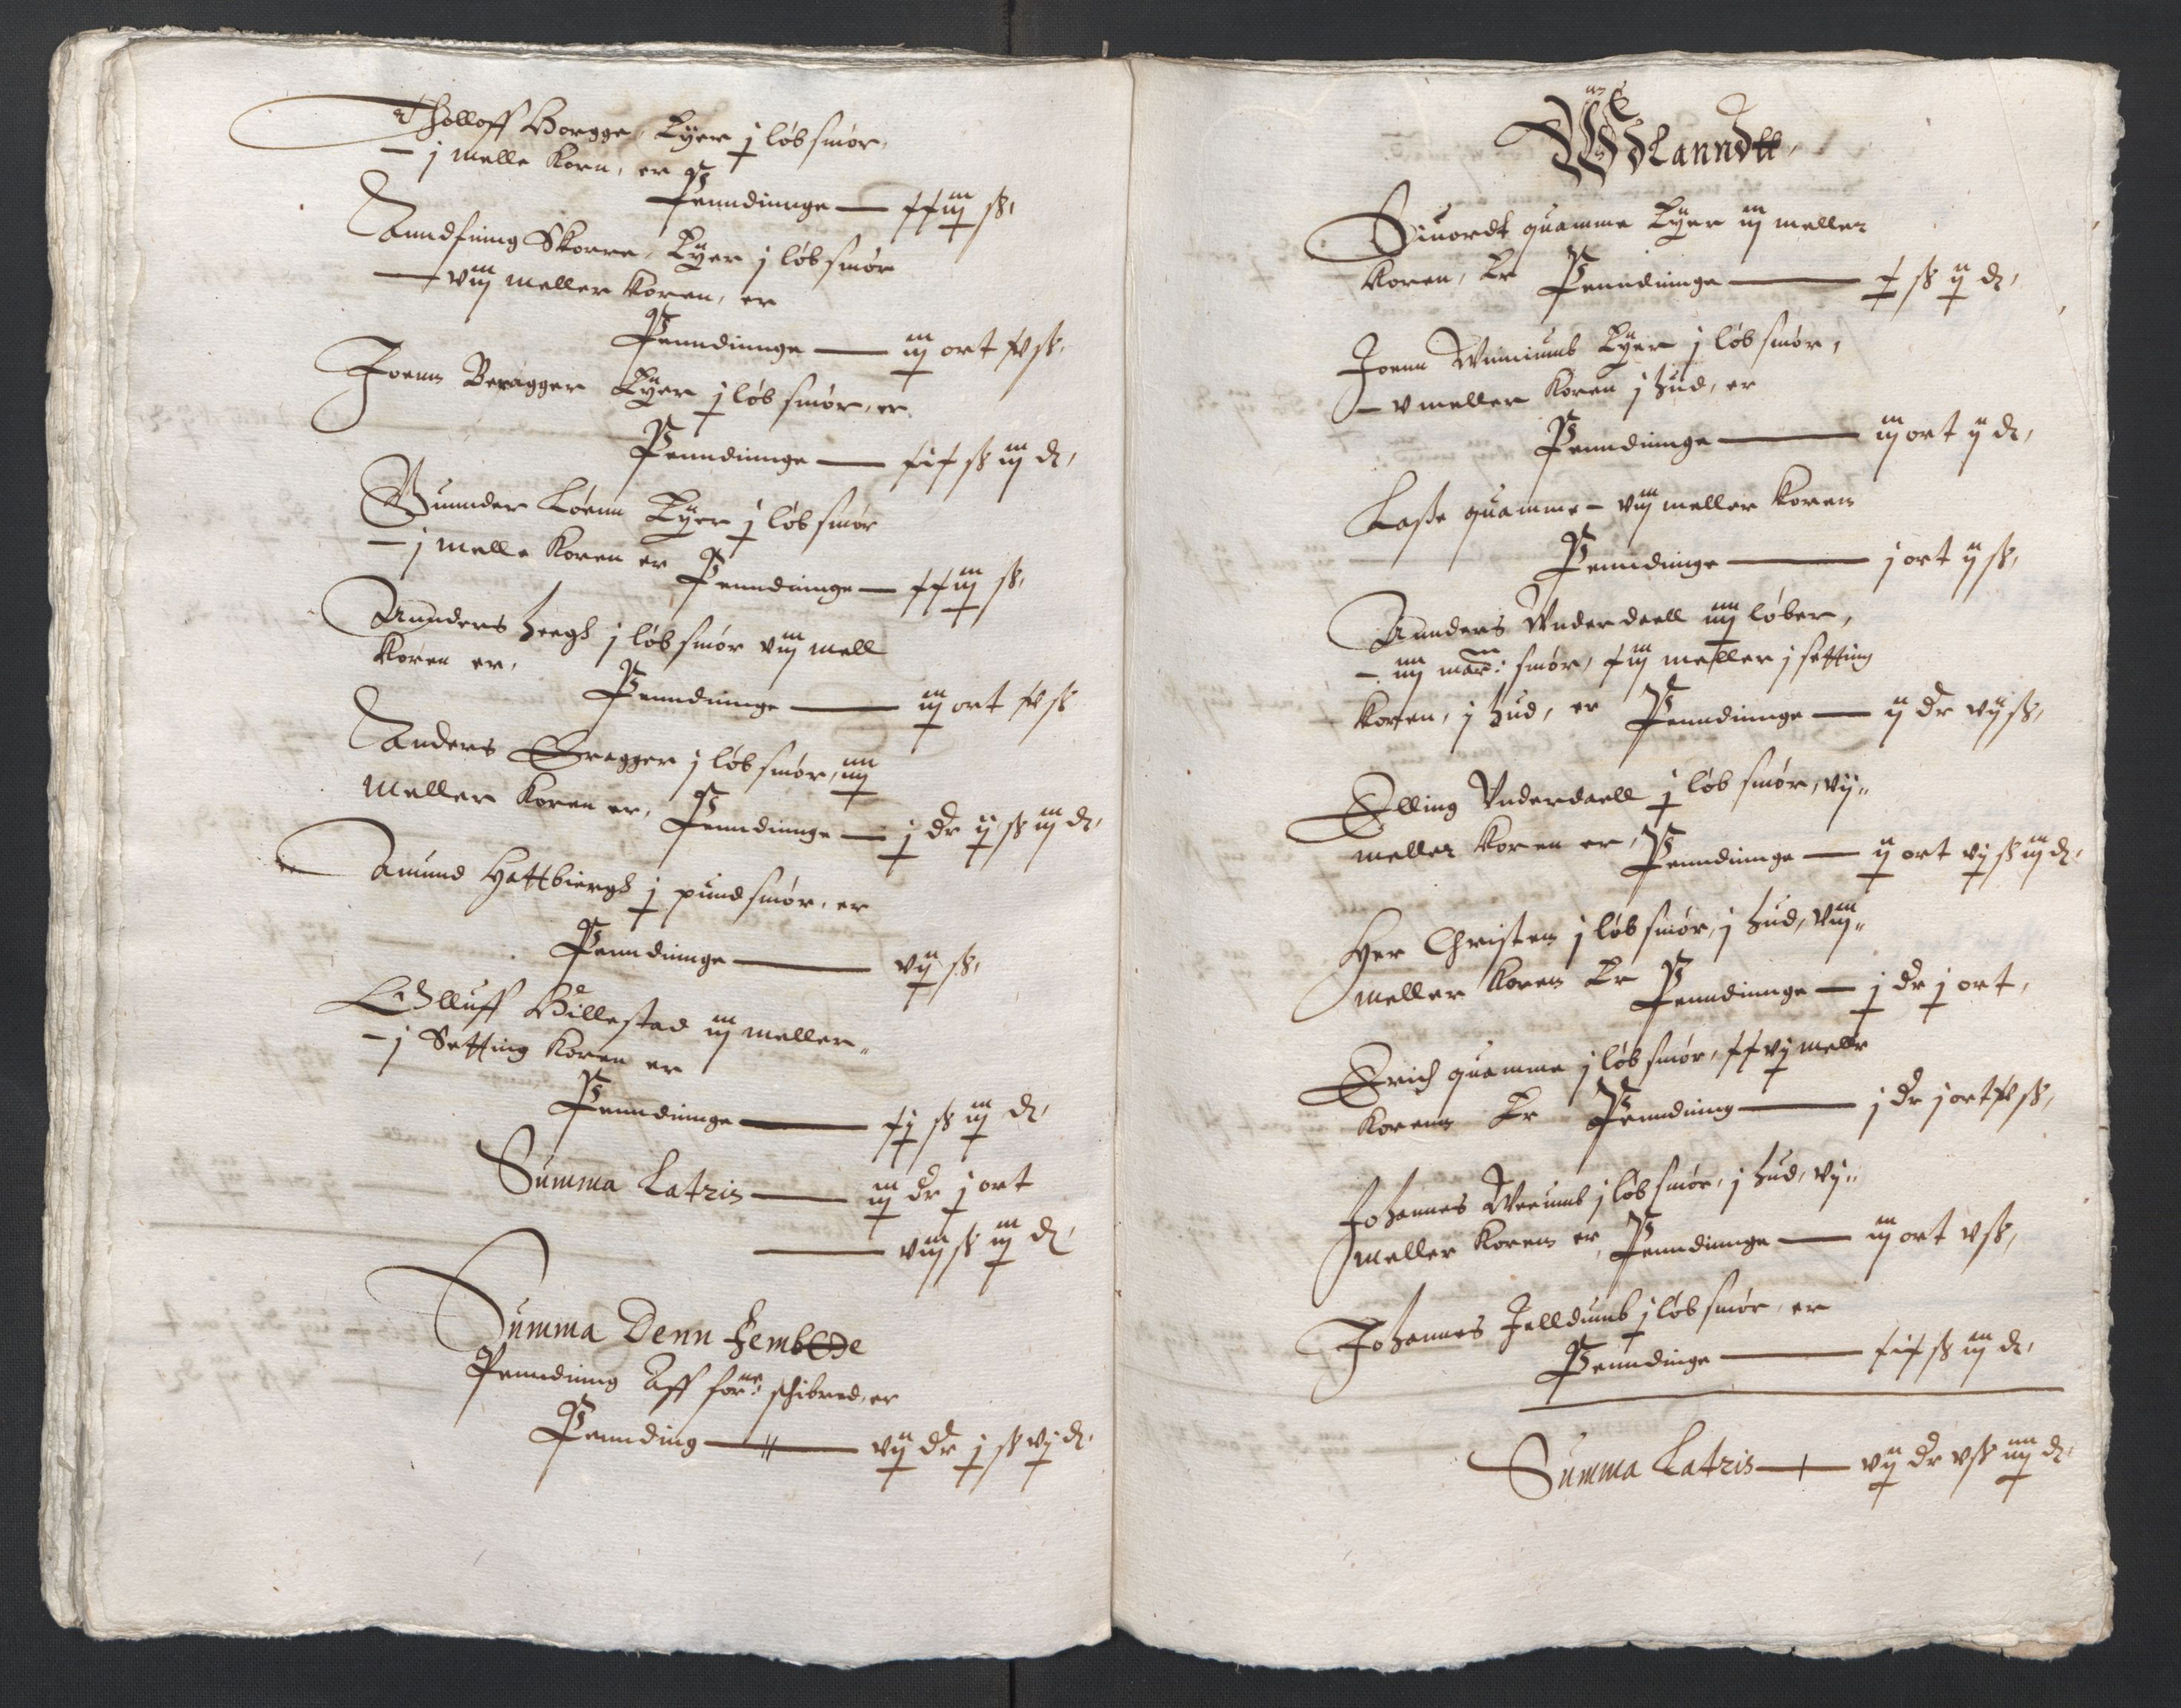 Tholloff Borgge, Eÿer j løb smør,
– j melle Korn, er
Penndinnge — xxiij sk,
Anndfinng Skorre, Eÿer j løb smør
— viij meller koren, er
Penndinnge — iij ort xv sk,
Joenn Beragger Eÿer j løb smør, er
Penndinnge — xix sk iij d,
Gunnder Løenn Eÿer j løb smør
– j melle koren er Penndinnge — xxiij sk,
Annders Heegh j løb smør viij mell
koren er,
Penndninge — iij ort xv sk
Anders Gragger j løb smør, iiij
meller koren er, Penndinnge — j dr ij sk iij d,
Amund Hattbiergh j pund smør, er
Penndninge — vij sk,
Olluff Billestad iij meller
– j Setting koren er
Penndinnge — xj sk iij d,
Summa Latris — iij dr j ort
— viij sk iij d,
Summa Denn
Penndinng Aff forne: schibred, er
Pennding — vij dr j sk vj d,
Wdlanndtt,
Siuordt quamme Eÿer iij meller
koren, Er Penndninge — x sk ij d,
Joenn Winiumb Eÿer j løb smør,
– v meller koren j hud, er
Penndninge — iij ort ij d,
Lasse quamme – viij meller koren
Penndinge — j ort ij sk,
Annders Vnderdaell iiij løber,
– iiij mar: smør, xiij meller j setting
koren, j hud, er Penndinnge — ij dr vij sk,
Elling Vnderdaell j løb smør, vij
meller koren er, Penndninge — ij ort vj sk iij d,
Her Christen j løb smør, j hud, viij
meller koren Er Penndninge — j dr j ort,
Erich quamme j løb smør, xxvj mellr
korenn Er Penndning — j dr j ort xv sk,
Johannes Weeumb j løb smør, j hud, vj
meller koren er, Penndinnge — iij ort v sk,
Johannes Jelldumb j løb smør, er
Penndinge — xix sk iij d,
Summa Latris — vij dr v sk iiij d,